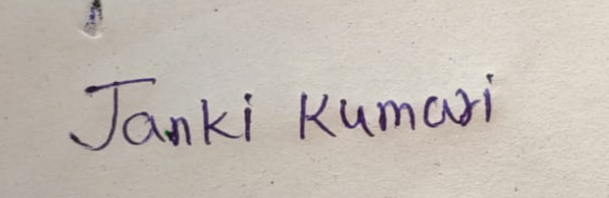 Janki Kumari